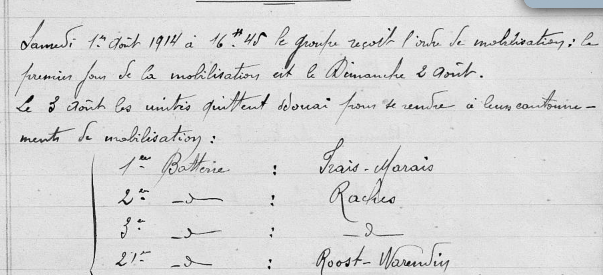 Samedi 1er Août 1914 à 16H45 le groupe reçoit l'ordre de mobilisation : le
premier jour de la mobilisation est le Dimanche 2 Août.
Le 3 Août les unités quittent Douai pour se rendre à leurs cantonne-
ments de mobilisation :
1ère Batterie : Frais-Marais
2e -d- : Raches
3e -d- : -d-
21e -d- : Roost-Warendin